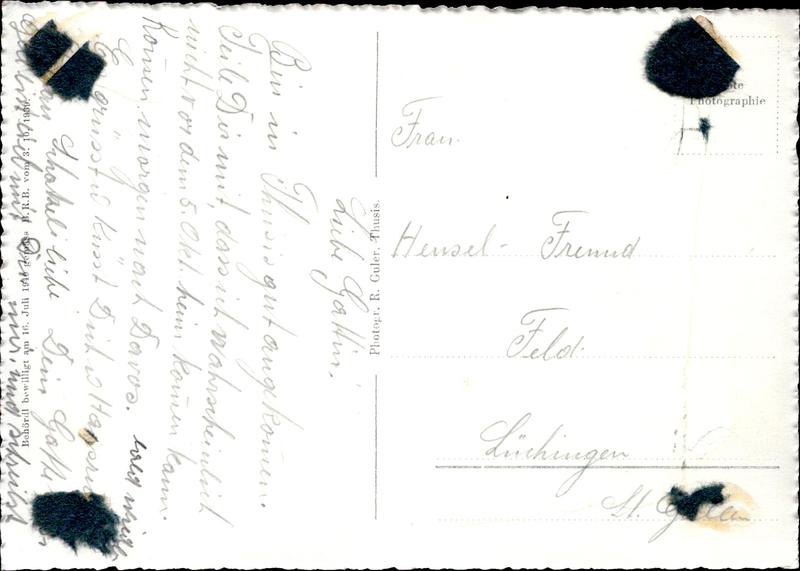 Liebe Gattin!
Bin in Thusis gut angekommen.
Teile Dir mit, dass ich wahrscheinlich
nicht vor dem 5. Okt. heim komen kann.
Komen morgen nach Davos.
Es grüsst u küsst Dich u
Schatzeli liebe Dein Gatte
mir und schreibst
Behördl bewilligt am 16. Juli 1940 gemäss B.R.B. vom 3. 10. 1939.
Photogr. R. Guler, Thusis.
Photographie
Frau
Hensel - Freund
Feld.
Lüchingen
St. Gallen